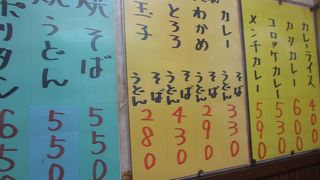 カレーライス 400
カツカレー 600
コロッケカレー 530
メンチカレー 590
カレー そば うどん 330
わかめ そば うどん 290
とろろ そば うどん 430
玉子 そば うどん 280
焼そば 550
焼うどん 550
ポリタン 650